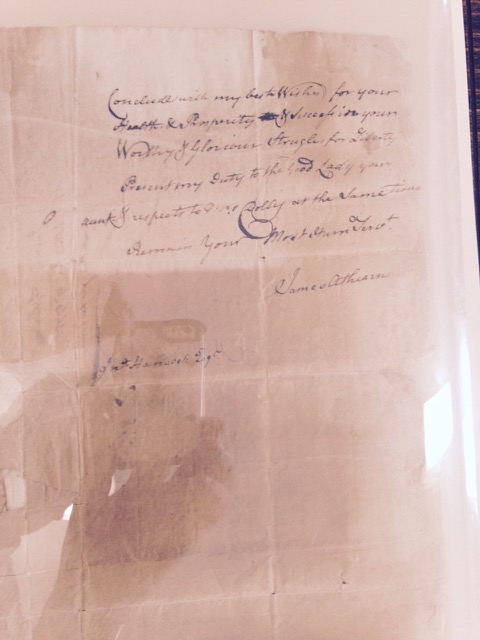 Conclude with my best Wishes for your
Health & Prosperity & Success in your
Worthy & Glorious Strugles for Liberty
Present my Duty to the Good Lady your
aunt & respects to Mrs Dolly at the Same time
Remain Your Most Hum Servt.
James Athearn
Jno Hancock Esqr